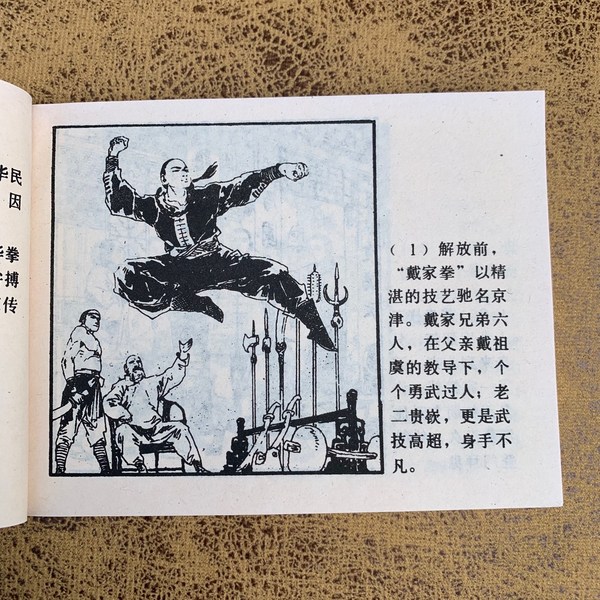 华民
因
华拳
搏
传
（1）解放前，
“戴家拳”以精
湛的技艺驰名京
津。戴家兄弟六
人，在父亲戴祖
虞的教导下，个
个勇武过人；老
二贵嵚，更是武
技高超，身手不
凡。